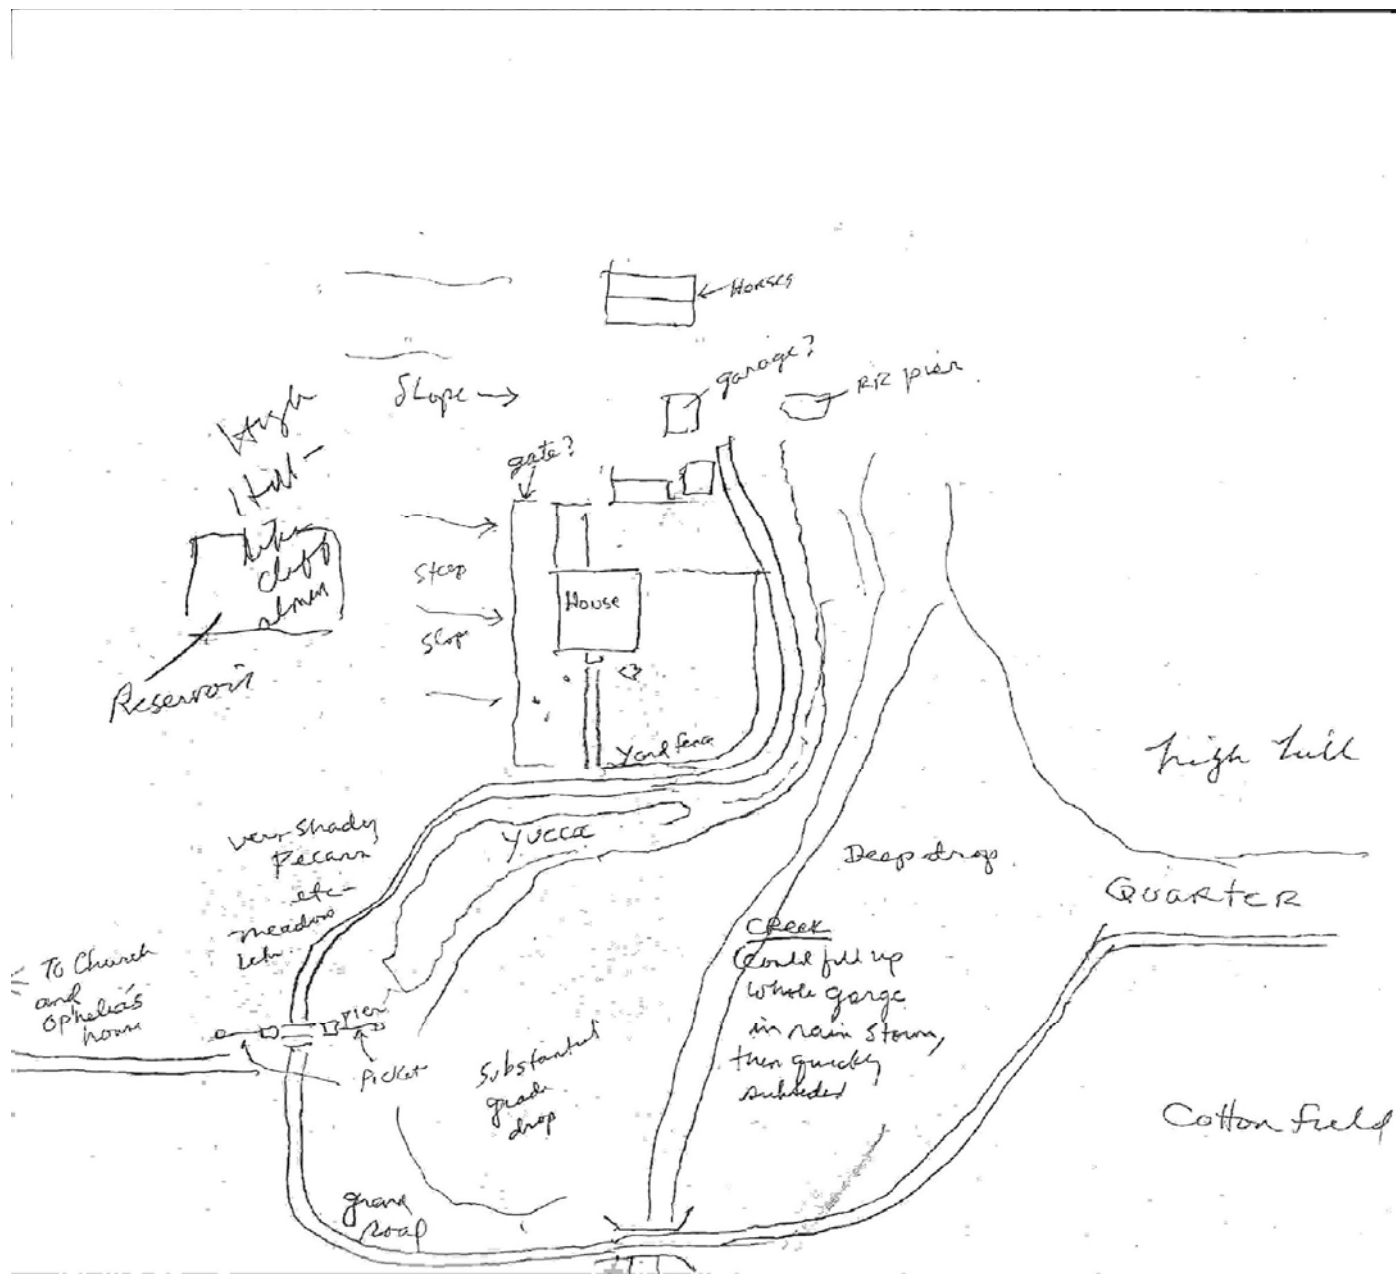 Horses
garage?
RR pier
Slope
High
Hill -
like
cliff
almon
gate?
Steep
Slop
House
Reservoir
Yard fence
high hill
Yucca
very shady
Pecans
etc-
meadow
Deep drop
QUARTER
CREEK
Could fill up
whole gorge
in rain storm,
then quickly
subsided
To Church
and
Ophelia's
house
Pier
Picket
Substantial
grade
drop
Cotton field
Road